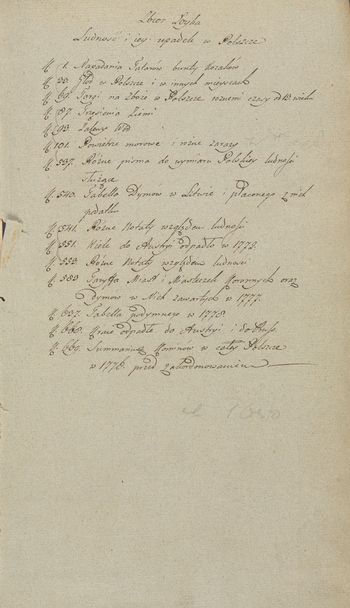 Zbior Łoyka
Ludność i iey upadek w Polszcze
K. 1. Napadania Tatarów bunty Kozaków
K. 33. Głód w Polszcze i w innych mieyscach
K. 69. Targi na zboże w Polszcze różnemi czasy od 13. wieku
K. 87. Trzęsienia Ziemi
K. 93. Zalewy Wód
K. 101. Powietrze morowe i rożne zarazy
K. 537. Różne pisma do wymiaru Polskiey ludności
służące
K. 540. Tabella Dymów w Litwie i płaconego z nich
podatku
K. 541. Różne Notaty względem ludności
K. 551. Wiele do Austryi odpadło w 1773.
K. 553. Różne Notaty względem ludności
K. 583. Taryffa Miast i Miasteczek Koronnych oraz
Dymów w Nich zawartych w 1777.
K. 637. Tabella podymnego w 1776
K. 668. Kraie odpadłe do Austryi i do Pruss
K. 669. Summaryusz Kominów w całey Polszcze
w 1776. przed zakordonowaniem